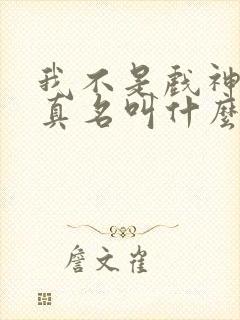 我不是戲神
真名叫什麼
詹文雀